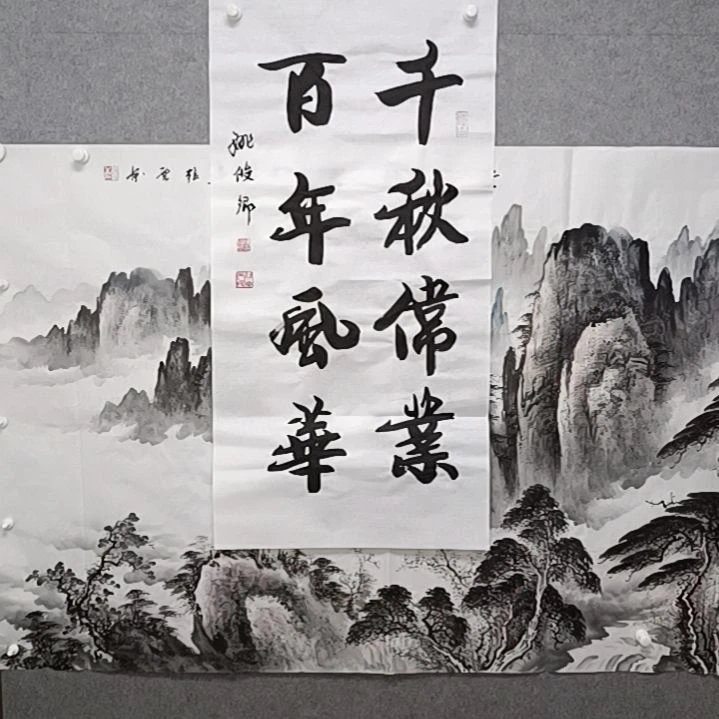 千秋偉業
百年風華
姚俊卿